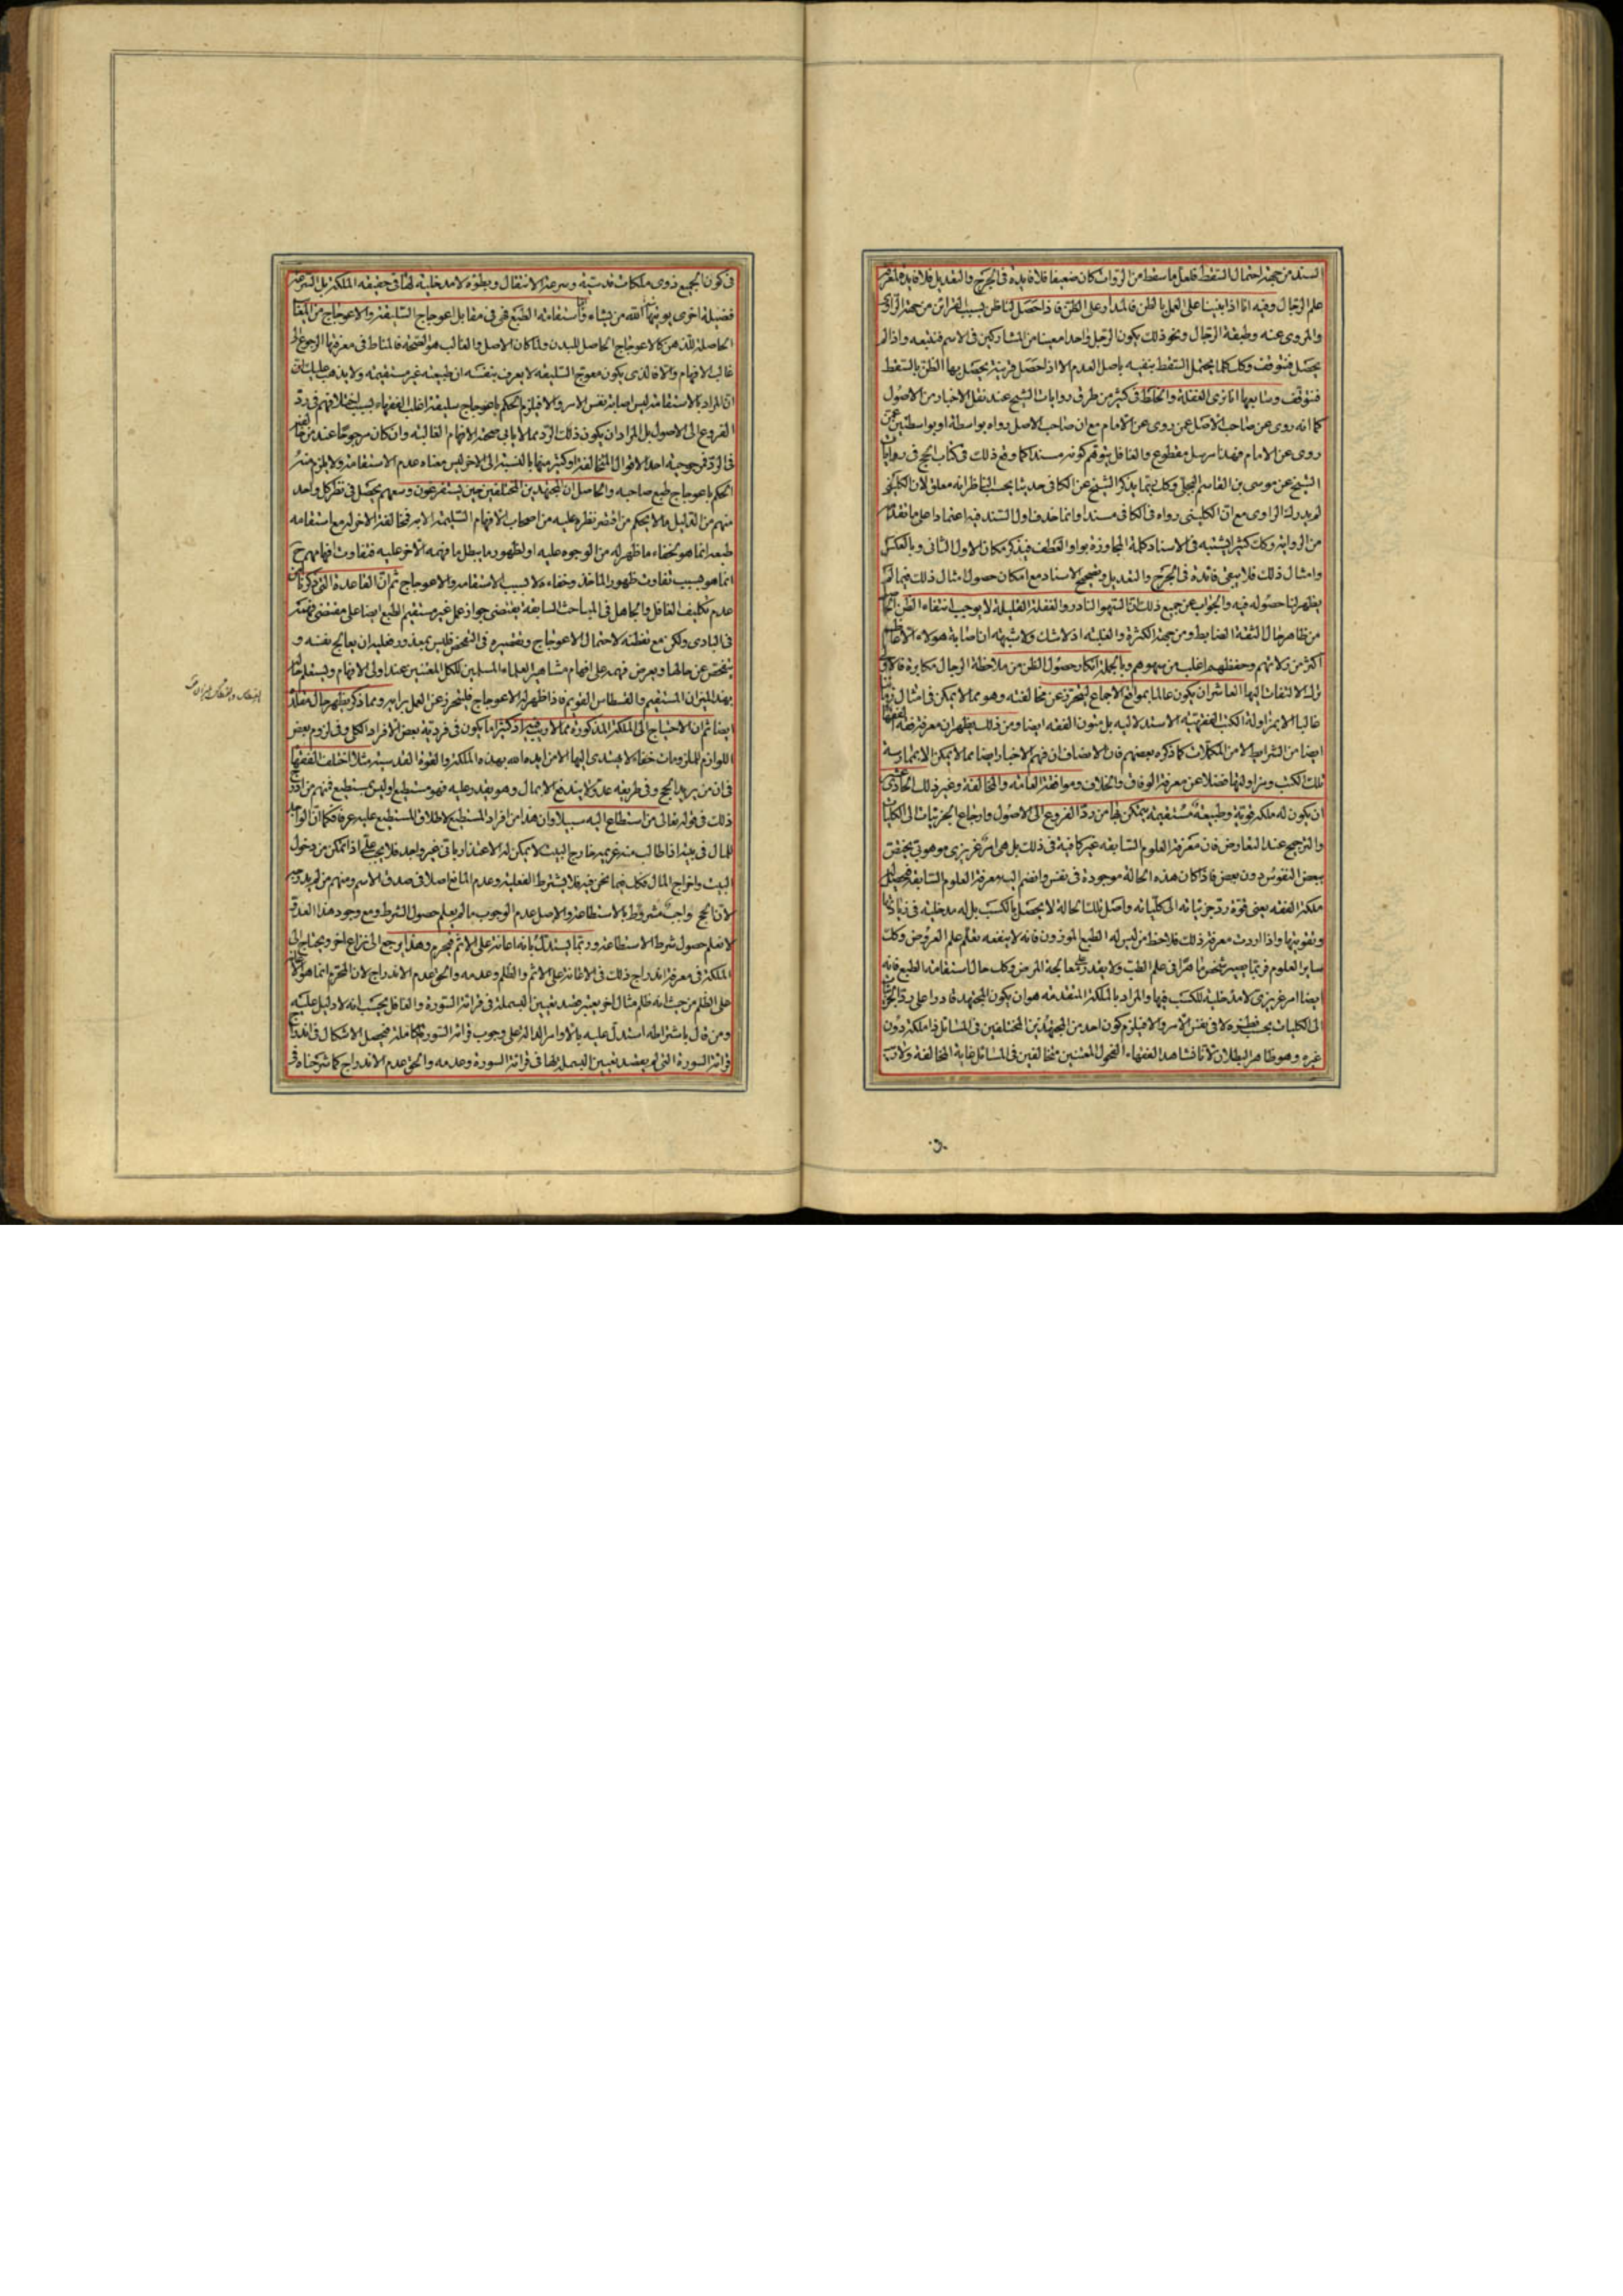 السند من جهة احتمال السقط فلعل ما سقط من الرواة كان ضعيفا فلا فايدة فى الجرح والتعديل فلا فايدة
علم الرجال وفيه انا اذا بنينا على العمل بالظن فالمدار على الظن فاذا حصل للناظر بسبب القرائن من جهة الراوى
والمروى عنه وطبقة الرجال ونحو ذلك يكون الرجل واحدا معينا من المشاركين فى الاسم فنتبعه واذا لم
يحصل فنتوقف وكك كلما يحتمل السقط بنفيه باصل العدم الا اذا حصل قرينة يحصل بها الظن بالسقط
فنتوقف وسابعها انا نرى الغفلة والخلط فى كثير من طرق روايات الشيخ عند نقل الاخبار من الاصول
كما انه روى عن صاحب الاصل عن روى عن الامام مع ان صاحب الاصل رواه بواسطة او بواسطتين عمن
روى عن الامام فهذا مرسل مقطوع والغافل يتوهم كونه مسندا كما وقع ذلك فى كتاب الحج فى روايات
الشيخ عن موسى بن القاسم البجلى وكك ربما يذكر الشيخ عن الكافى حديثا يحسب الناظر انه معلق لان الكلينى
لم يدرك الراوى مع ان الكلينى رواه فى الكافى مسندا وانما حذف اول السند فيه اعتمادا على ما تقدم
من الرواية وكك كثيرا يشتبه فى الاسناد كلمة المجاوزة بواو العطف فيذكر مكان الاول الثانى وبالعكس
وامثال ذلك فلا يبقى فائدة فى الجرح والتعديل وتصحيح الاسناد مع امكان حصول امثال ذلك فيما لم
يظهر لنا حصوله فيه والجواب عن جميع ذلك ان السهو النادر والغفلة القليلة لا يوجب انتفاء الظن
من ظاهر حال الثقة الضابط ومن جهة الكثرة والغلبة اذ لا شك ولا شبهة ان اصابة هولاء
اكثر من زلاتهم وحفظهم اغلب من سهوهم وبالجملة انكار حصول الظن من ملاحظة الرجال مكابرة
ترك الالتفات اليها العاشر ان يكون عالما بمواقع الاجماع ليتحرز عن مخالفته وهو مما لا يمكن فى امثال زماننا
غالبا الا بمزاولة الكتب الفقهية الاستدلالية بل متون الفقه ايضا ومن ذلك يظهر ان معرفة فقه الفقهاء
ايضا من الشرايط لا من المكملات كما ذكره بعضهم فان الانصاف ان فهم الاخبار ايضا مما لا يمكن الا بممارسة
تلك الكتب ومزاولتها فضلا عن معرفة الوفاق والخلاف وموافقة العامة والمخالفة وغير ذلك الحادى عشر
ان يكون له ملكة قوية وطبيعة مستقيمة يتمكن بها من رد الفروع الى الاصول وارجاع الجزئيات الى الكليات
والترجيح عند التعارض فان معرفة العلوم السابقة غير كافية فى ذلك بل هى امر غريزى موهوبى يختص
ببعض النفوس دون بعض فاذا كان هذه الحالة موجودة فى نفس وانضم اليه معرفة العلوم السابقة فيحصل له
ملكة الفقه يعنى قوة رد جزئياته الى كلياته واصل تلك الحالة لا يحصل بالكسب بل له مدخلية فى زيادتها
وتقويتها واذا اردت معرفة ذلك فلاحظ من ليس له الطبع الموزون فانه لا ينفعه تعلم علم العروض وكك
ساير العلوم فربما يصير شخص ماهرا فى علم الطب ولا يقدر على معالجة المرض وكك حال استقامة الطبع فانه
ايضا امر غريزى لا مدخلية للكسب فيها والمراد بالملكة المتقدمة هو ان يكون المجتهد قادرا على رد الجزئيات
الى الكليات بحسب نظره لا فى نفس الامر والا فيلزم كون احد من المجتهدين المختلفين فى المسائل ذا ملكة دون
غيره وهو ظاهر البطلان لانا نشاهد الفقهاء الفحول المتقنين مختالفين فى المسائل غاية المخالفة ولا ريب
فى كون الجميع ذوى ملكات قدسية وسرعة الانتقال وبطؤه لا مدخلية لها فى حقيقة الملكة بل السرعة
فضيلة اخرى يوتيها الله من يشاء واما استقامة الطبع فهى فى مقابل اعوجاج السليقة والاعوجاج من
الحاصلة للذهن كالاعوجاج الحاصل للبدن ولما كان الاصل والغالب هو الصحة فالمناط فى معرفتها الرجوع الى
غالب الافهام والا فالذى يكون معوج السليقة لا يعرف بنفسه ان طبيعته غير مستقيمة ولا يذهب عليك ان
ان المراد بالاستقامة ليس اصابة نفس الامر والا فيلزم الحكم باعوجاج سليقة اغلب الفقهاء بسبب اختلافهم فى رد
الفروع الى الاصول بل المراد ان يكون ذلك الرد مما لا يابى صحته الافهام الغالبة وان كان مرجوحا عند من خالفهم
فى الرد فمرجوحية احد الاقوال المتخالفة او كثير منها بالنسبة الى الاخر ليس معناه عدم الاستقامة ولا يلزم منه
الحكم باعوجاج طبع صاحبه والحاصل ان المجتهدين المختلفين حين يستفرغون وسعهم يحصل فى نظر كل واحد
منهم من الدليل ما لا يحكم من اقتصر نظره عليه من اصحاب الافهام السليمة الا به فمخالفة الاخر له مع استقامة
طبعه انما هو لخفاء ما ظهر له من الوجوه عليه او لظهور ما يبطل ما فهمه الاخر عليه فتفاوت افهامهم ح
انما هو بسبب تفاوت ظهور الماخذ وخفاءه لا بسبب الاستقامة والاعوجاج ثم ان القاعدة التى ذكرناها
عدم تكليف الغافل والجاهل فى المباحث السابقة يقتضى جواز عمل غير مستقيم الطبع ايضا على مقتضى فهمه
فى البادى ولكن مع تفطنه لاحتمال الاعوجاج وتقصيره فى الفحص فليس بمعذور فعليه ان يعالج نفسه و
يتفحص عن حالها ويعرض فهمه على افهام مشاهير العلماء المسلمين للكل المتقنين عند اولى الافهام ويستعلم حاله
بهذا الميزان المستقيم والقسطاس القويم فاذا ظهر له الاعوجاج فليتحرز عن العمل برايه ومما ذكر يظهر حال مقلده
ايضا ثم ان الاحتياج الى الملكة المذكورة مما لا ريب فيه اذ كثيرا ما يكون فى فردية بعض الافراد للكلى وفى لزوم بعض
اللوازم للملزومات خفاء لا يهتدى اليها الا من ايده الله بهذه الملكة والقوة القدسية مثلا اختلف الفقهاء
فى ان من يريد الحج وفى طريقه عدو لا يندفع الا بمال وهو يقدر عليه فهو مستطيع او ليس بمستطيع فمنهم من ادرج
ذلك فى قوله تعالى من استطاع اليه سبيلا وان هذا من افراد المستطيع لاطلاق المستطيع عليه عرفا فكما ان الواجد
للمال فى بيته اذا طالب منه غريمه خارج البيت لا يمكن له الاعتذار بانى غير واجد فلا يجب على اذا تمكن من دخول
البيت واخراج المال فكك فيما نحن فيه فلا يشترط الفعلية وعدم المانع اصلا فى صدق الاسم ومنهم من لم يدرجه
لان الحج واجب مشروط بالاستطاعة والاصل عدم الوجوب ما لم يعلم حصول الشرط ومع وجود هذا العدو
لا نعلم حصول شرط الاستطاعة وربما يستدل بانه اعانة على الاثم فيحرم وهذا يرجع الى نزاع اخر ويحتاج الى
الملكة فى معرفة اندراج ذلك فى الاعانة على الاثم والظلم وعدمه والحق عدم الاندراج لان المحرم انما هو الاعانة
على الظلم من حيث انه ظلم مثال اخر يعتبر قصد تعيين البسملة فى قراءة السورة والغافل يحسب انه لا دليل عليه
ومن قال باشتراطه استدل عليه بالاوامر الدالة على وجوب قراءة السورة الكاملة فيحصل الاشكال فى اندراج
قراءة السورة التى لم يقصد تعيين البسملة لها فى قراءة السورة وعدمه والحق عدم الاندراج كما شرحناه فى